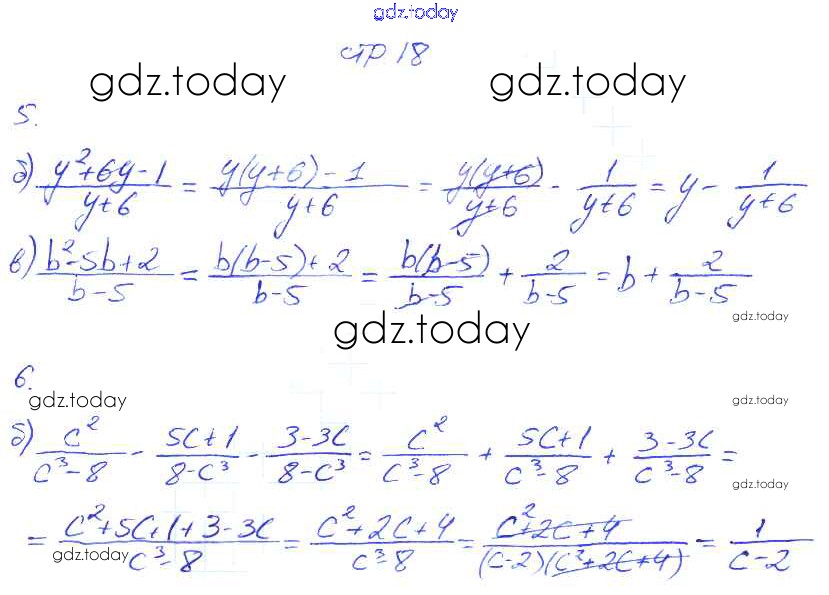 gdz.today
стр 18
gdz.today gdz.today
5.
б) (y²+6y-1)/(y+6) = (y(y+6)-1)/(y+6) = (y(y+6))/(y+6) - 1/(y+6) = y - 1/(y+6)
в) (b²-5b+2)/(b-5) = (b(b-5)+2)/(b-5) = (b(b-5))/(b-5) + 2/(b-5) = b + 2/(b-5)
gdz.today
gdz.today
6.
gdz.today gdz.today
б) c²/(c³-8) - (5c+1)/(8-c³) - (3-3c)/(8-c³) = c²/(c³-8) + (5c+1)/(c³-8) + (3-3c)/(c³-8) =
gdz.today
= (c²+5c+1+3-3c)/(c³-8) = (c²+2c+4)/(c³-8) = (c²+2c+4)/((c-2)(c²+2c+4)) = 1/(c-2)
gdz.today